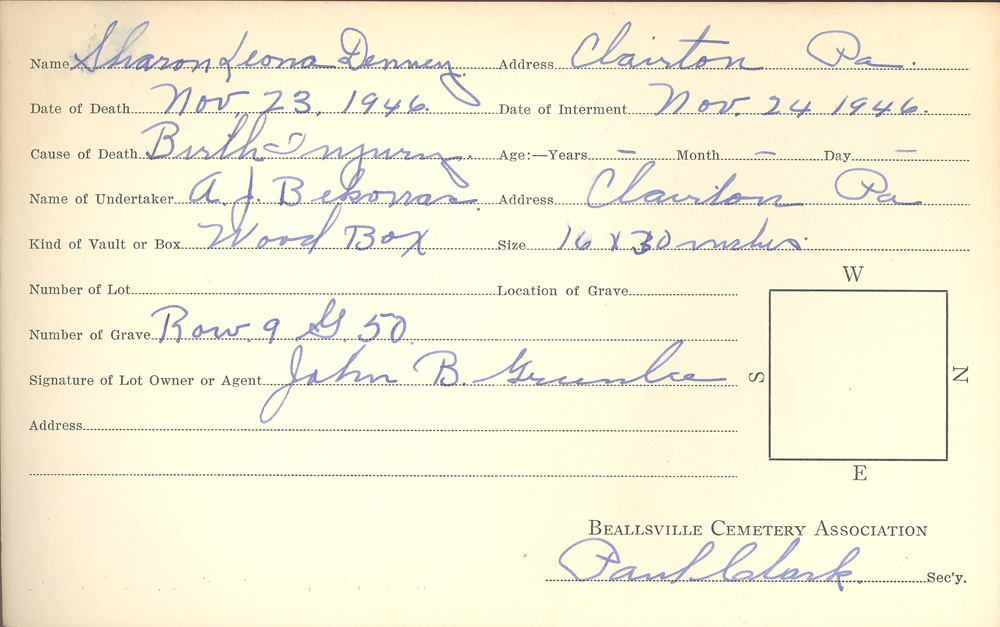 Name Sharon Leona Denney Address Clairton Pa.
Date of Death Nov 23, 1946. Date of Interment Nov. 24 1946.
Cause of Death Birth-Injury. Age:—Years — Month — Day —
Name of Undertaker A. J. Address Clairton Pa
Kind of Vault or Box Wood Box Size 16 X 30 inches.
Number of Lot Location of Grave
Number of Grave Row. 9 G. 50.
Signature of Lot Owner or Agent John B. Greenlee
Address
W
S
N
E
BEALLSVILLE CEMETERY ASSOCIATION
Paul Clark. Sec'y.